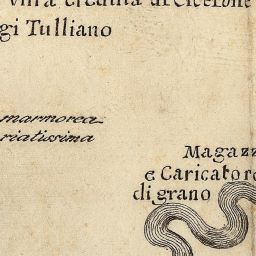 villa creduta di Cicerone
gi Tulliano
marmorea
riatissima
Magazz
e Caricator
di grano